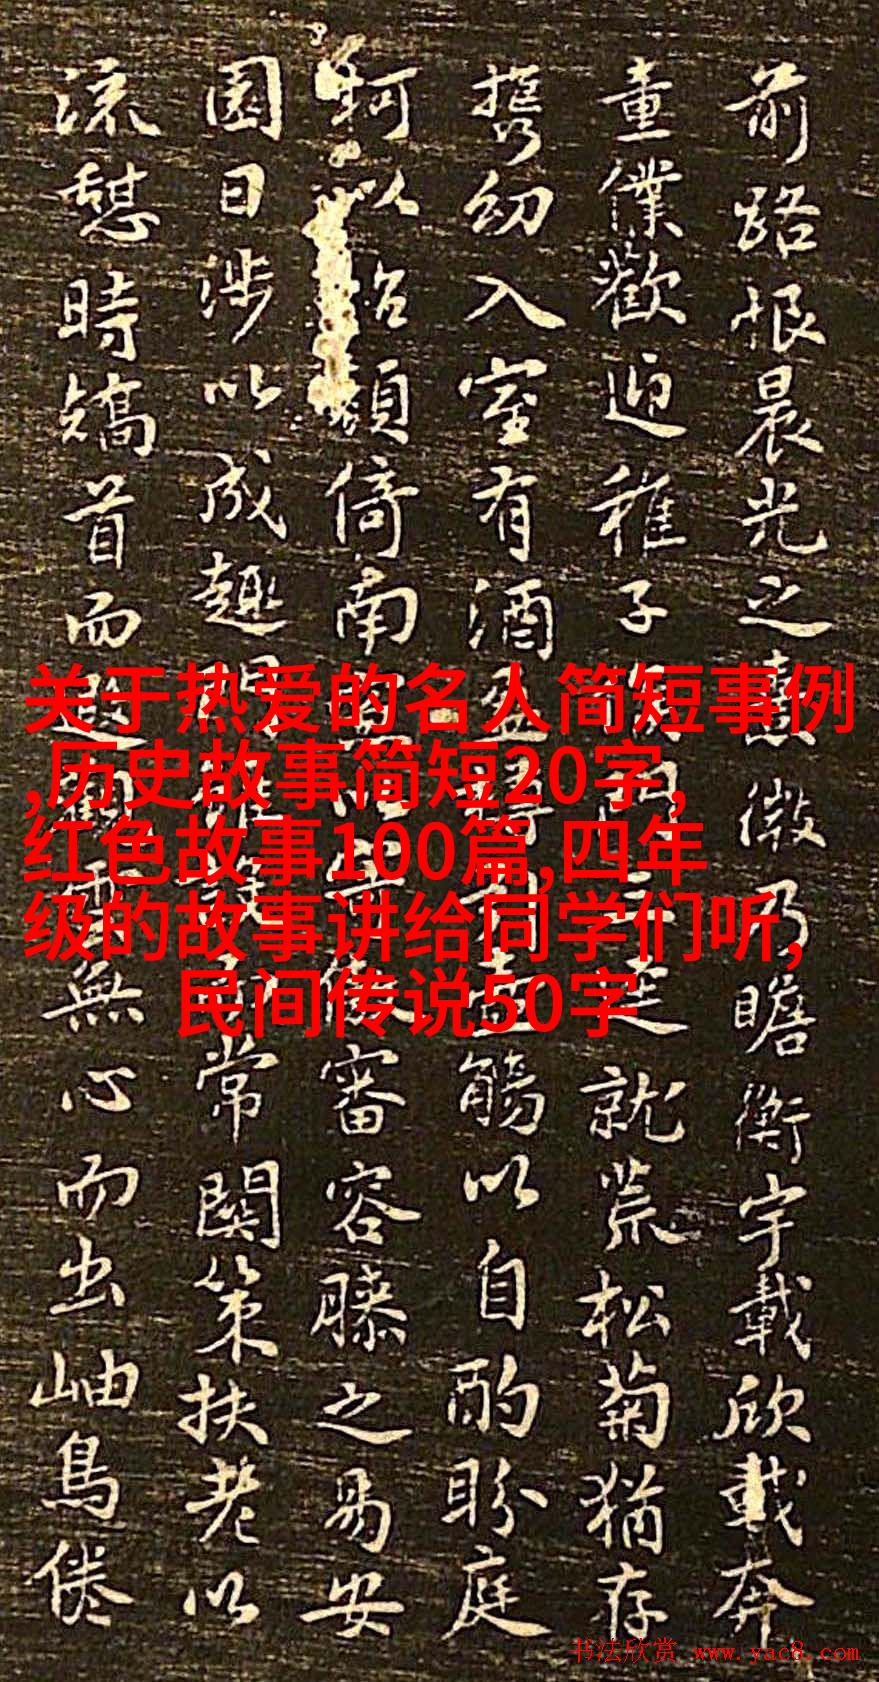 关于热爱的名人简短事例
,历史故事简短20字,
红色故事100篇,四年
级的故事讲给同学们听,
民间传说50字
前路恨晨光之熹微乃瞻衡宇載欣載奔
童僕歡迎稚子就荒松菊猶存
攜幼入室有酒盈觴以自酌盼庭
柯以怡顏倚南審容膝之易安
園日涉以成趣常關策扶老以
流憩時矯首而遐雲無心而出岫鳥倦
书法欣赏 www.yac8.com